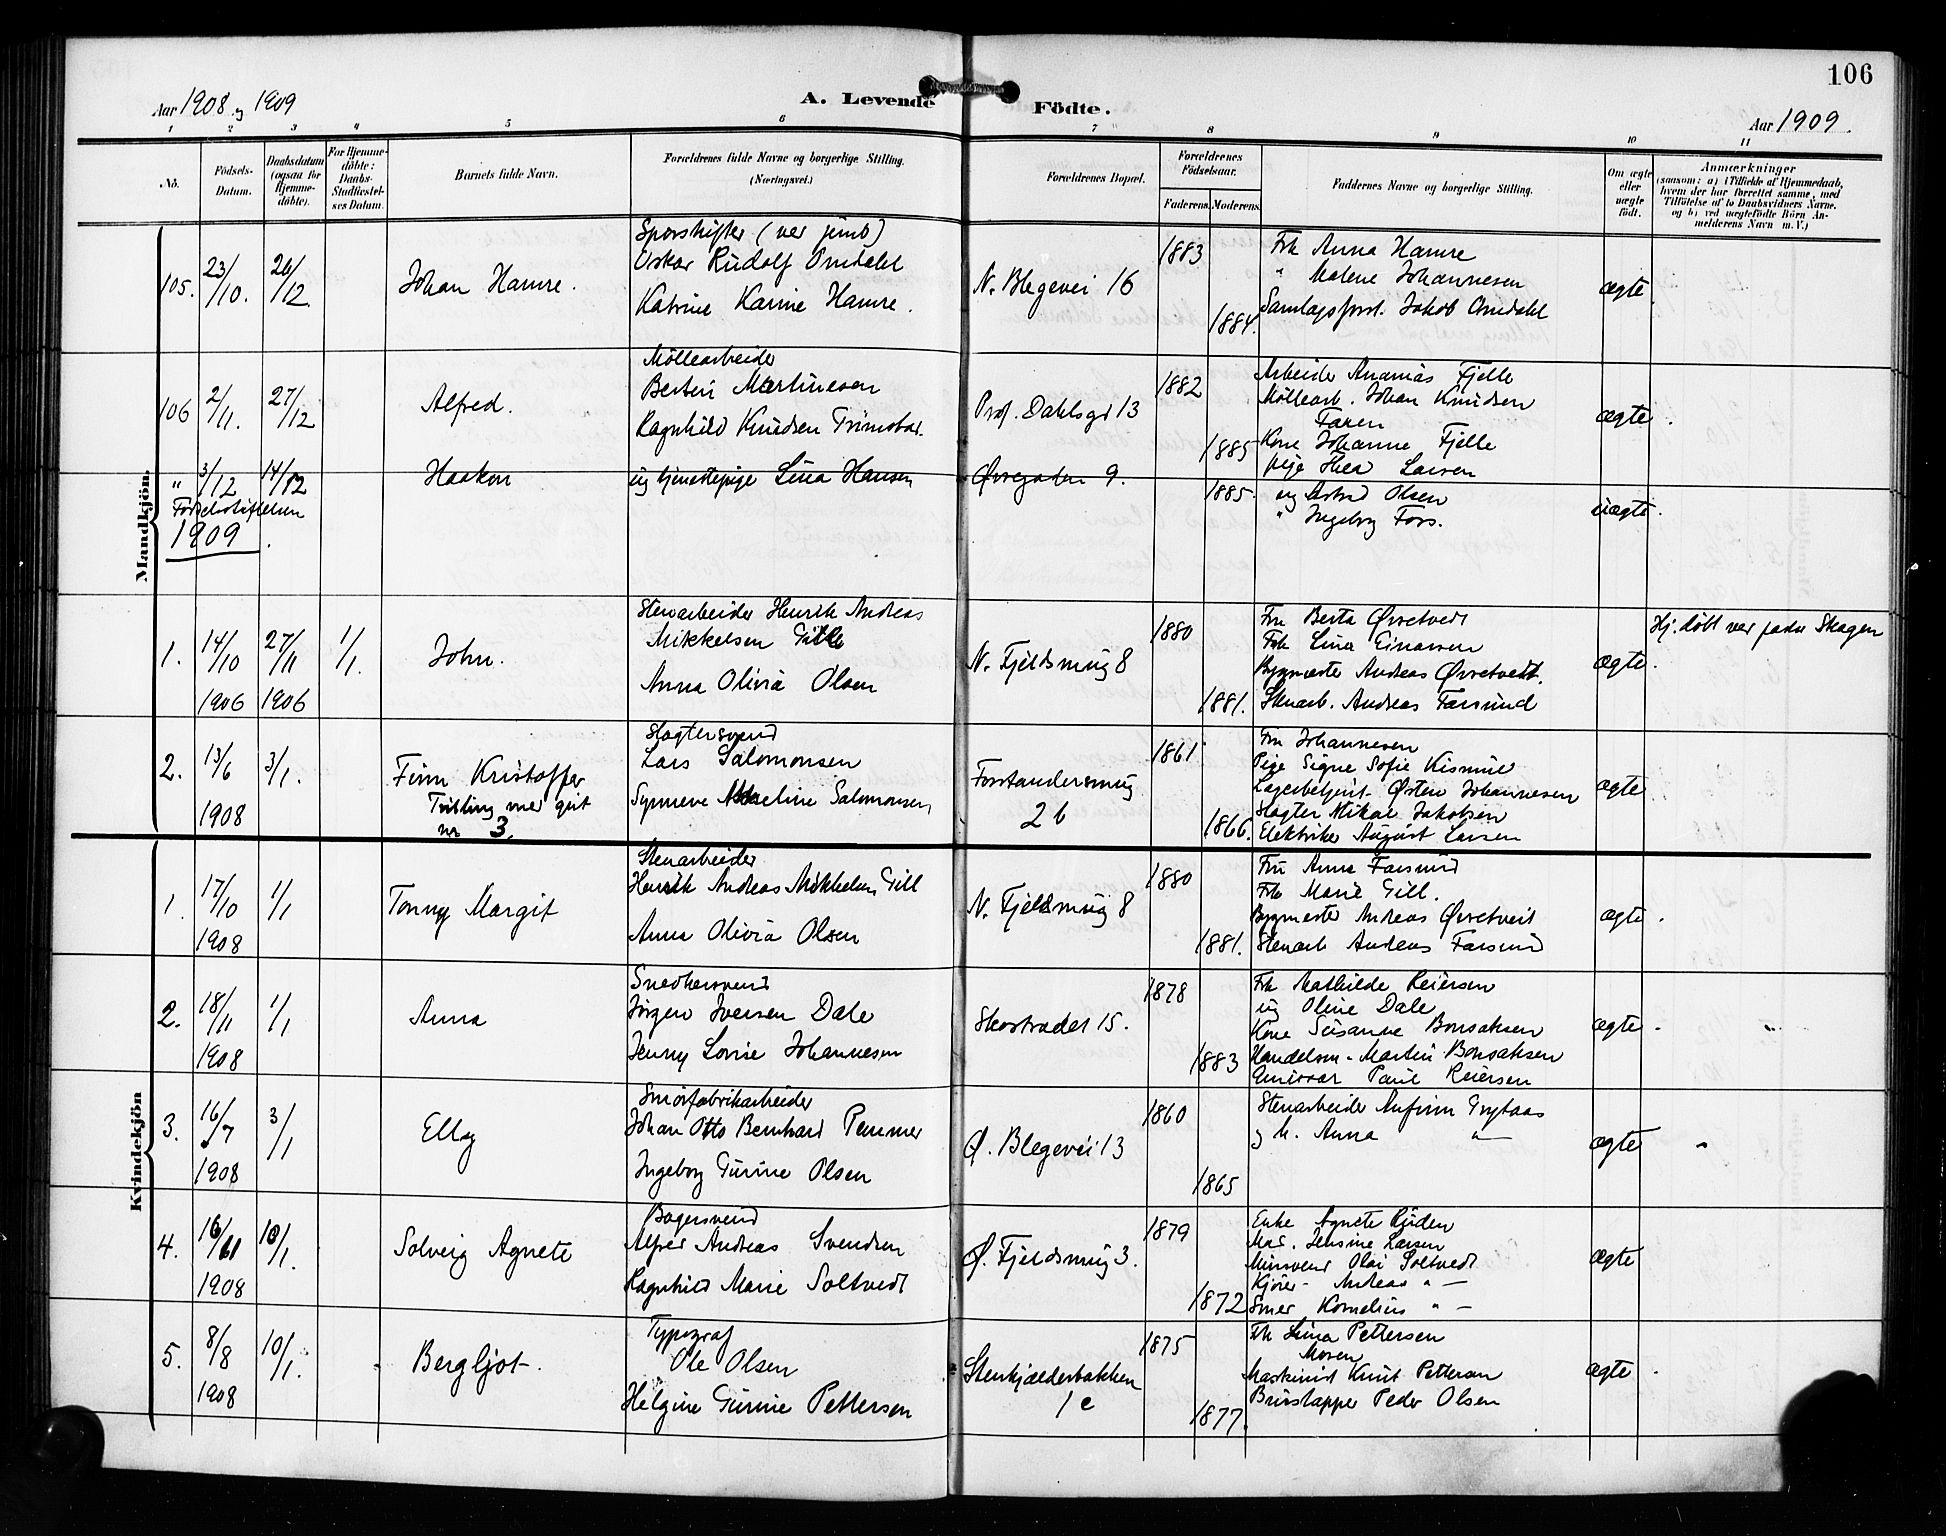 106
Aar 1908 og 1909
A. Levende Födte.
Aar 1909.
1 2 3 4 5 6 7 8 9 10 11
No.
Födsels-Datum.
Daabsdatum (ogsaa for Hjemme-döbte).
For Hjemme-döbte: Daabs-Stadfæstel-ses Datum.
Barnets fulde Navn.
Forældrenes fulde Navne og borgerlige Stilling.
(Næringsvei.)
Forældrenes Bopæl.
Forældrenes Födselsaar.
Faderens. Moderens.
Faddernes Navne og borgerlige Stilling.
Om ægte eller uægte födt.
Anmærkninger
(saasom: a) i Tilfælde af Hjemmedaab,
hvem der har forrettet samme, med
Tilföielse af to Daabsvidners Navne.
og b) ved uægtefödte Börn An-
melderens Navn m. V.)
Mandkjön.
105. 23/10. 26/12 Johan Hamre.
Sporskifter (ver jernb)
Oskar Rudolf Omdahl
Katrine Karine Hamre.
N. Blegevei 16
1883
1884.
Frk Anna Hamre
" Malene Johannesen
Samlagsforst. Jakob Omdahl
ægte
106 2/11. 27/12 Alfred.
Möllearbeider
Bertin Martinesen
Ragnhild Knudsen
Prof. Dahlsgd 13
1882
1885
Arbeider Ananias Fjelle
Möllearb. Johan Knudsen
Faren
Kone Johanne Fjelle
pige Thea Larsen
ægte.
" 3/12 14/12 Haakon
Födselsstiftelsen
ug tjenestepige Lina Hansen
Øvregaden 9.
1885.
ug Astrid Olsen
" Ingeborg Fors.
uægte.
1909
1. 14/10 1906 27/11 1906 1/1 John.
Stenarbeider Henrik Andreas
Mikkelsen Gill
Anna Olivia Olsen
N. Fjeldsmug 8
1880
1881.
Fru Berta Øvretvedt
Frk Lina Einarsen
Bygmester Andreas Øvretvedt.
Stenarb. Andreas Farsund
ægte.
Hj. döbt ver pastor Skagen
2. 13/6 1908 3/1. Finn Kristoffer
Tvilling med pist
nr 3.
Slagtersvend
Lars Salomonsen
Synneve Salomonsen
Forstandersmug
2 b
1861
1866.
Fru Johannesen
Pige Signe Sofie Kismul
Lagerbetjent Østen Johannesen
Slagter Mikal Jakobsen
Elektriker August Larsen
ægte
Kvindekjön
1. 17/10 1908 1/1 Tonny Margit
Stenarbeider
Henrik Andreas Mikkelsen Gill
Anna Olivia Olsen
N. Fjeldsmug 8
1880
1881.
Fru Anna Farsund
Frk Marie Gill.
Bygmester Andreas Øvretveit
Stenarb Andreas Farsund
ægte.
2. 18/11 1908 1/1 Anna
Snedkersvend
Jörgen Iversen Dale
Jenny Lovise Johannesen
Skostrædet 15.
1878
1883
Frk Mathilde Reiersen
ug Oline Dale
Kone Susanne Bonsaksen
Handelsm. Martin Bonsaksen
Emissær Paul Reiersen
ægte.
3. 16/7 1908 3/1 Elly
Smörfabrikarbeider
Johan Otto Bernhard Pemmer
Ingeborg Gurine Olsen
Ø. Blegevei 13
1860
1865
Stenarbeider Anfinn Grytaas
og h. Anna "
ægte
4. 16/11 1908 10/1. Solveig Agnete
Bagersvend
Alfred Andreas Svendsen
Ragnhild Marie Soltvedt
Ø. Fjeldsmug 3.
1879
1872
Enke Agnete Ruden
Mad. Jensine Larsen
Mursvend Olai Soltvedt
Kjörer Andreas " —
Smed Kornelius " —
ægte
5. 8/8 1908 10/1. Bergljot.
Typograf
Ole Olsen
Helgine Gurine Pettersen
Stenkjælderbakken
1 c
1875
1877.
Frk Lina Pettersen
Moren
Maskinist Knut Pettersen
Brustapper Peder Olsen
ægte